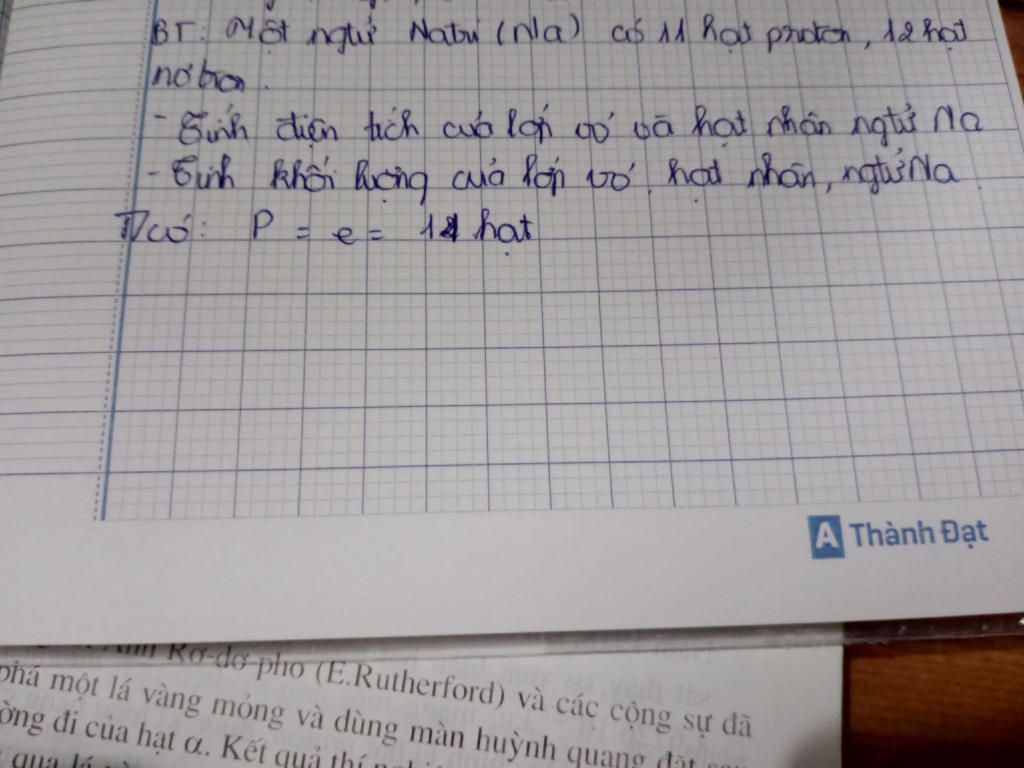 BT: Một ngtử Natri (Na) có 11 hạt photon, 12 hạt
nơtron.
- Tính điện tích của lớp vỏ và hạt nhân ngtử Na
- Tính khối lượng của lớp vỏ, hạt nhân, ngtử Na.
Ta có: P = e = 11 hạt
A Thành Đạt
Anh Rơ-dơ-pho (E.Rutherford) và các cộng sự đã
phá một lá vàng mỏng và dùng màn huỳnh quang đặt sau
ờng đi của hạt α. Kết quả thí
qua lá